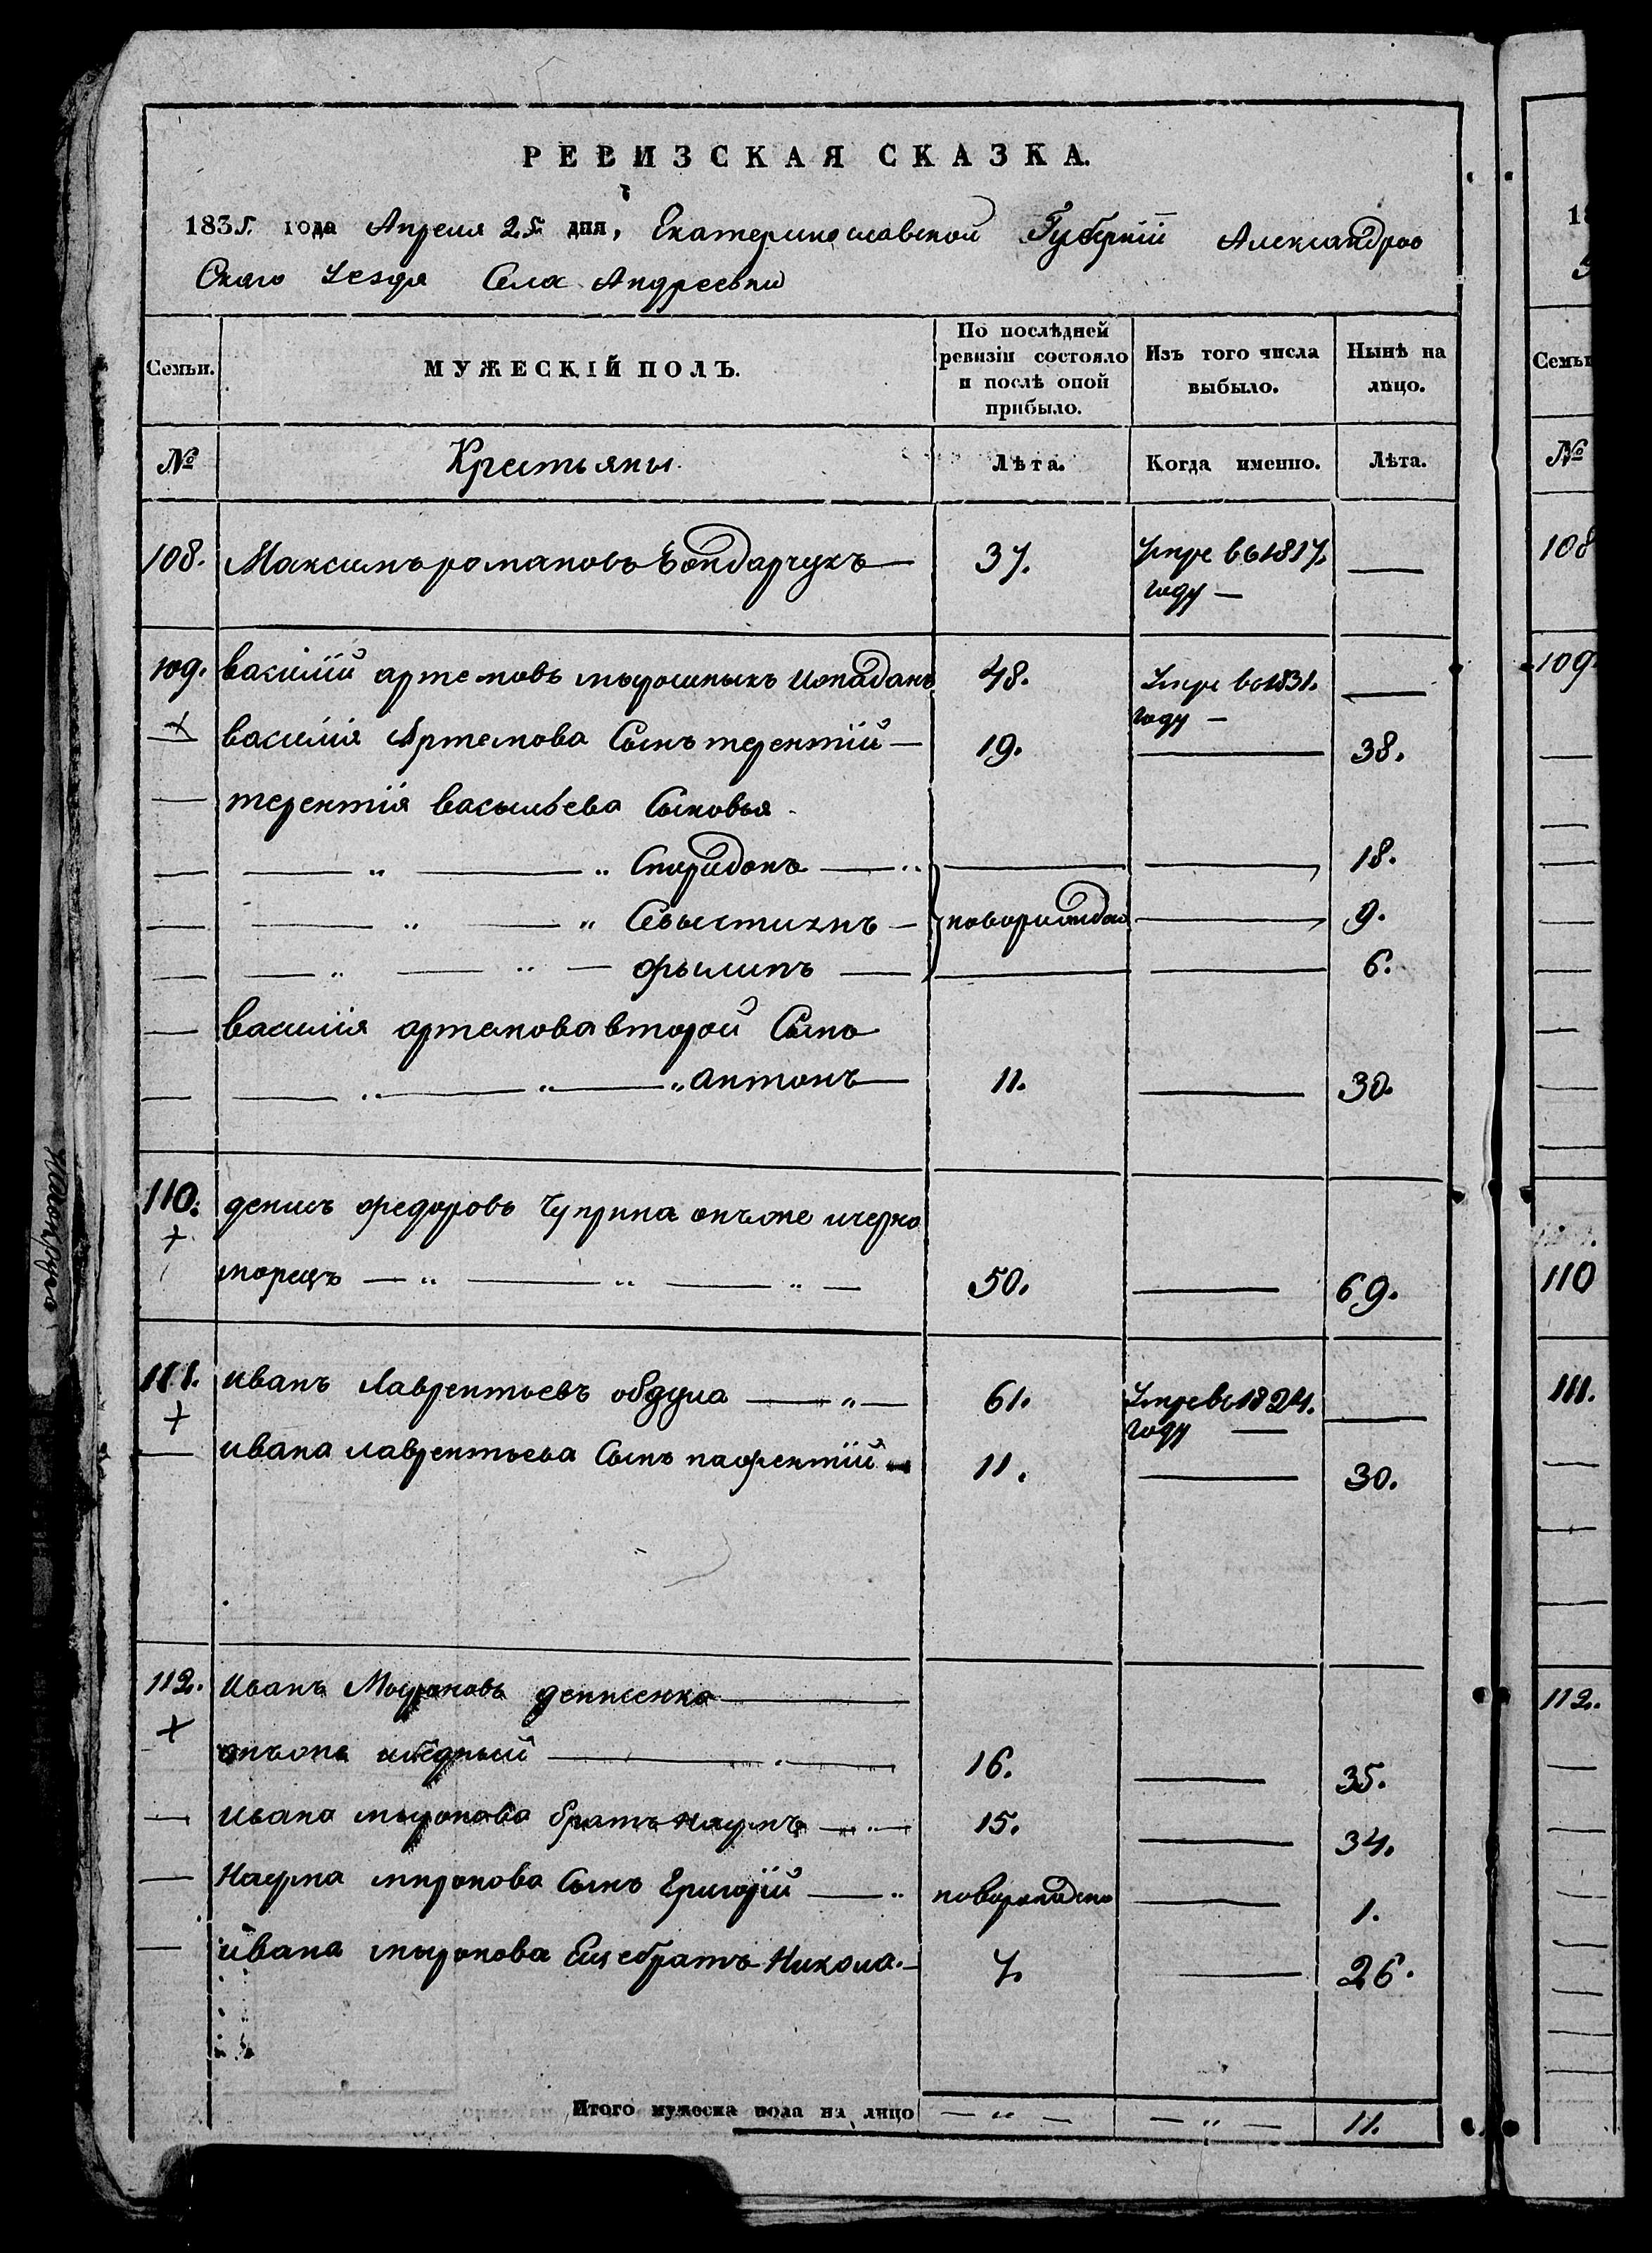 РЕВИЗСКАЯ СКАЗКА.
1835. года Апреля 25 дня, Екатеринославской Губернiи Александров
Скаго Уезда Села Андреевки
Семьи.
МУЖЕСКІЙ ПОЛЪ.
По послѣдней ревизіи состояло и послѣ оной прибыло.
Изъ того числа выбыло.
Нынѣ на лицо.
Семьи
№ Крестьяны. Лѣта. Когда именно. Лѣта. №
108. Максимъ романовъ Бондарчукъ — 37. Умре въ 1817. — 108
году —
109. василій артемовъ мырошныкъ 48. Умре въ 1831. — 109.
году —
+ василія Артемова Сынъ терентій — 19. — 38.
— терентія васыльева Сыновья
— — „ — „ Спиридонъ — „ — — 18.
— — „ — „ Севастиянъ — новорожден — 9.
— — „ — „ — фылипъ — — — 6.
— василія артемова второй Сынъ
— — „ — „ — „ антонъ — 11. — 30.
110. денисъ федоровъ Чуприна онъже ичерно 110
+ морецъ — „ — „ — „ — 50. — 69.
111. иванъ Лаврентьевъ обдула — „ — 61. Умре въ 1824. — 111.
+ году —
— ивана лаврентьева Сынъ пафентій — 11. — 30.
112. Иванъ Мыроновъ денисенко — 112.
+ онъже ибедный — „ — 16. — 35.
— ивана мыронова братъ наумъ — „ — 15. — 34.
— Наума миронова Сынъ Григорій — „ новорожденъ — 1.
— ивана мыронова Еще братъ Никола. — 7. — 26.
Итого мужеска пола на лицо — „ — — „ — 11.